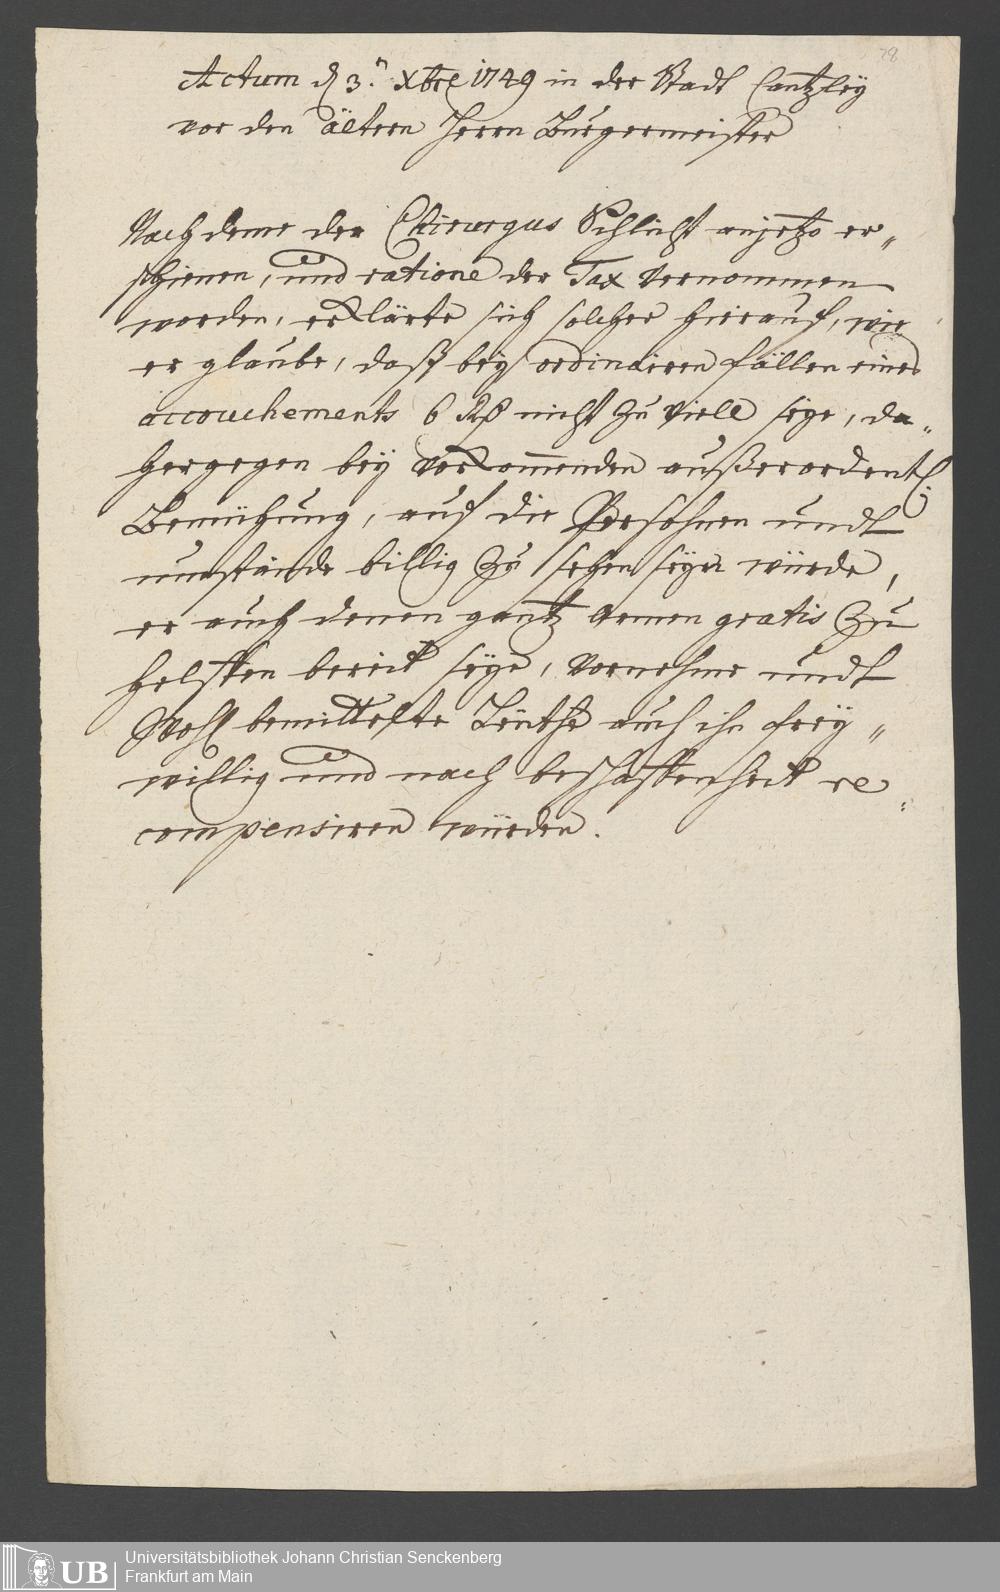 78
Actum d 3.n Xbre 1749 in der Stadt Cantzley
vor den ältern Herrn Burgermeister
Nach deme der Chirurgus Schlicht anjetzo er„
schienen, und ratione der Tax vernommen
worden, erklärte sich solcher hierauf, wie
er glaube, daß bey ordinairen fällen eines
accouchements 6 Rß nicht zu viele seye, da„
hergegen bey vorkom̅enden außerordentl.
Bemühung, auf die Persohnen undt
umstände billig zu sehen seyn würde,
er auch denen gantz armen gratis zu
helffen bereit seye, vornehme undt
Wohl bemittelte Leuthe auch ihn frey„
willig und nach beschaffenheit re„
compensiren würden.
UB
Universitätsbibliothek Johann Christian Senckenberg
Frankfurt am Main